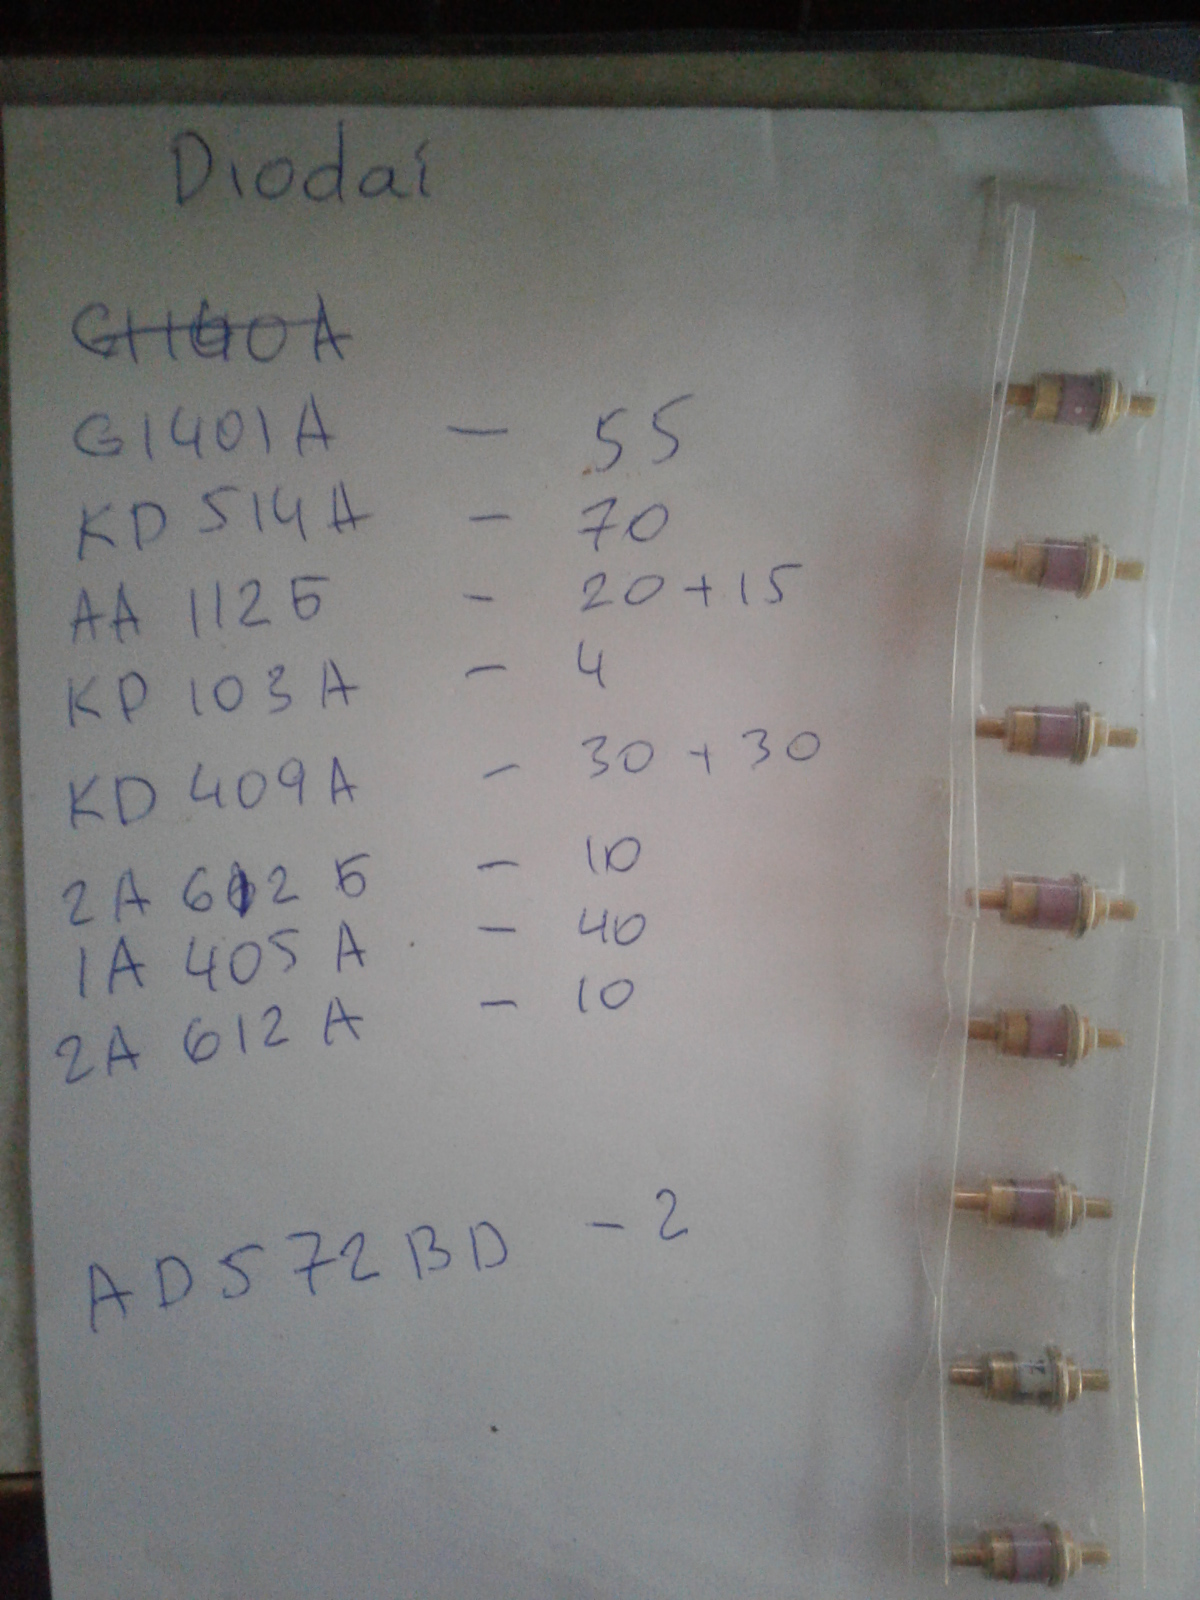 Diodai
G1401A - 55
KD 514A - 70
AA 112Б - 20 + 15
KP 103A - 4
KD 409A - 30 + 30
2A 612 Б - 10
1A 405 A - 40
2A 612 A - 10
AD572BD - 2